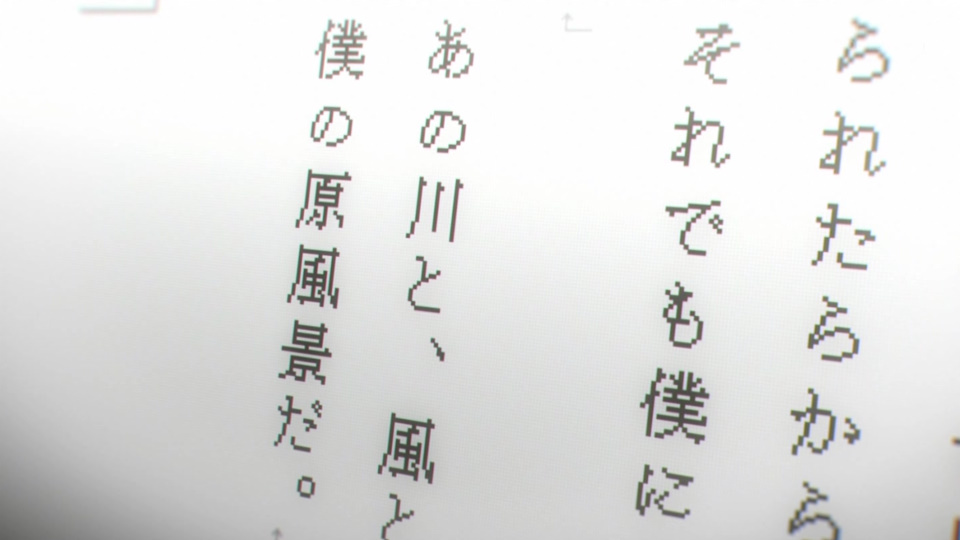 られたらから
それでも僕に
あの川と、風と
僕の原風景だ。